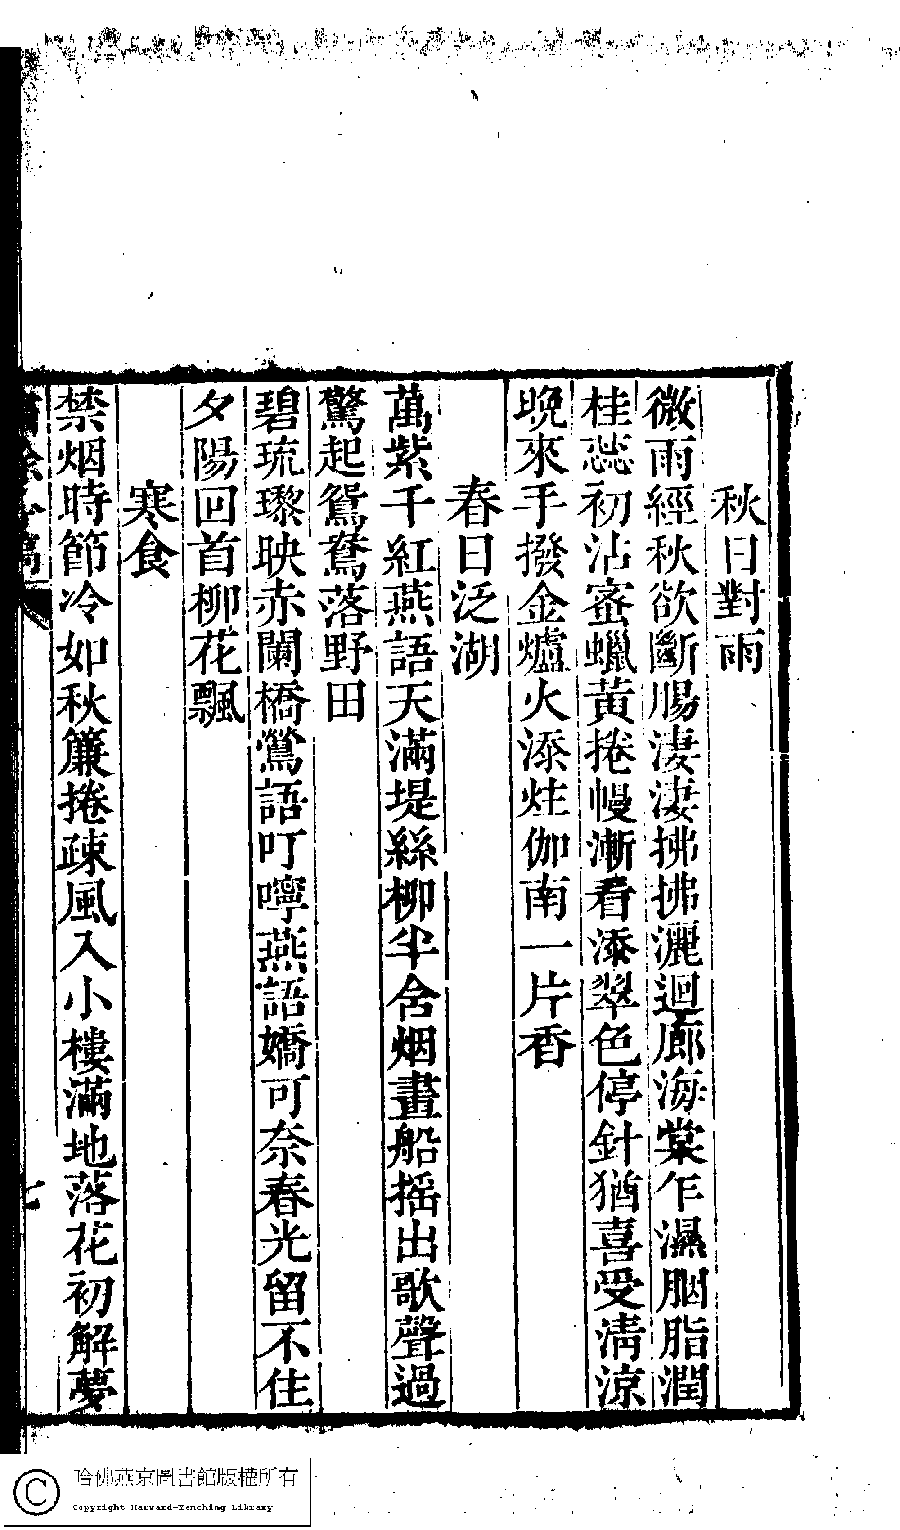 秋日對雨
微雨經秋欲斷腸淒淒拂拂灑迴廊海棠乍濕胭脂潤
桂蕊初沾蜜蠟黃捲幔漸看添翠色停針猶喜受淸涼
晚來手撥金爐火添炷伽南一片香
春日泛湖
萬紫千紅燕語天滿堤絲柳半含烟畫船搖出歌聲過
驚起鴛鴦落野田
碧琉瓈映赤闌橋鶯語叮嚀燕語嬌可奈春光留不住
夕陽回首柳花飄
寒食
禁烟時節冷如秋簾捲疎風入小樓滿地落花初解夢
七
哈佛燕京圖書館版權所有
Copyright Harvard-Yenching Library